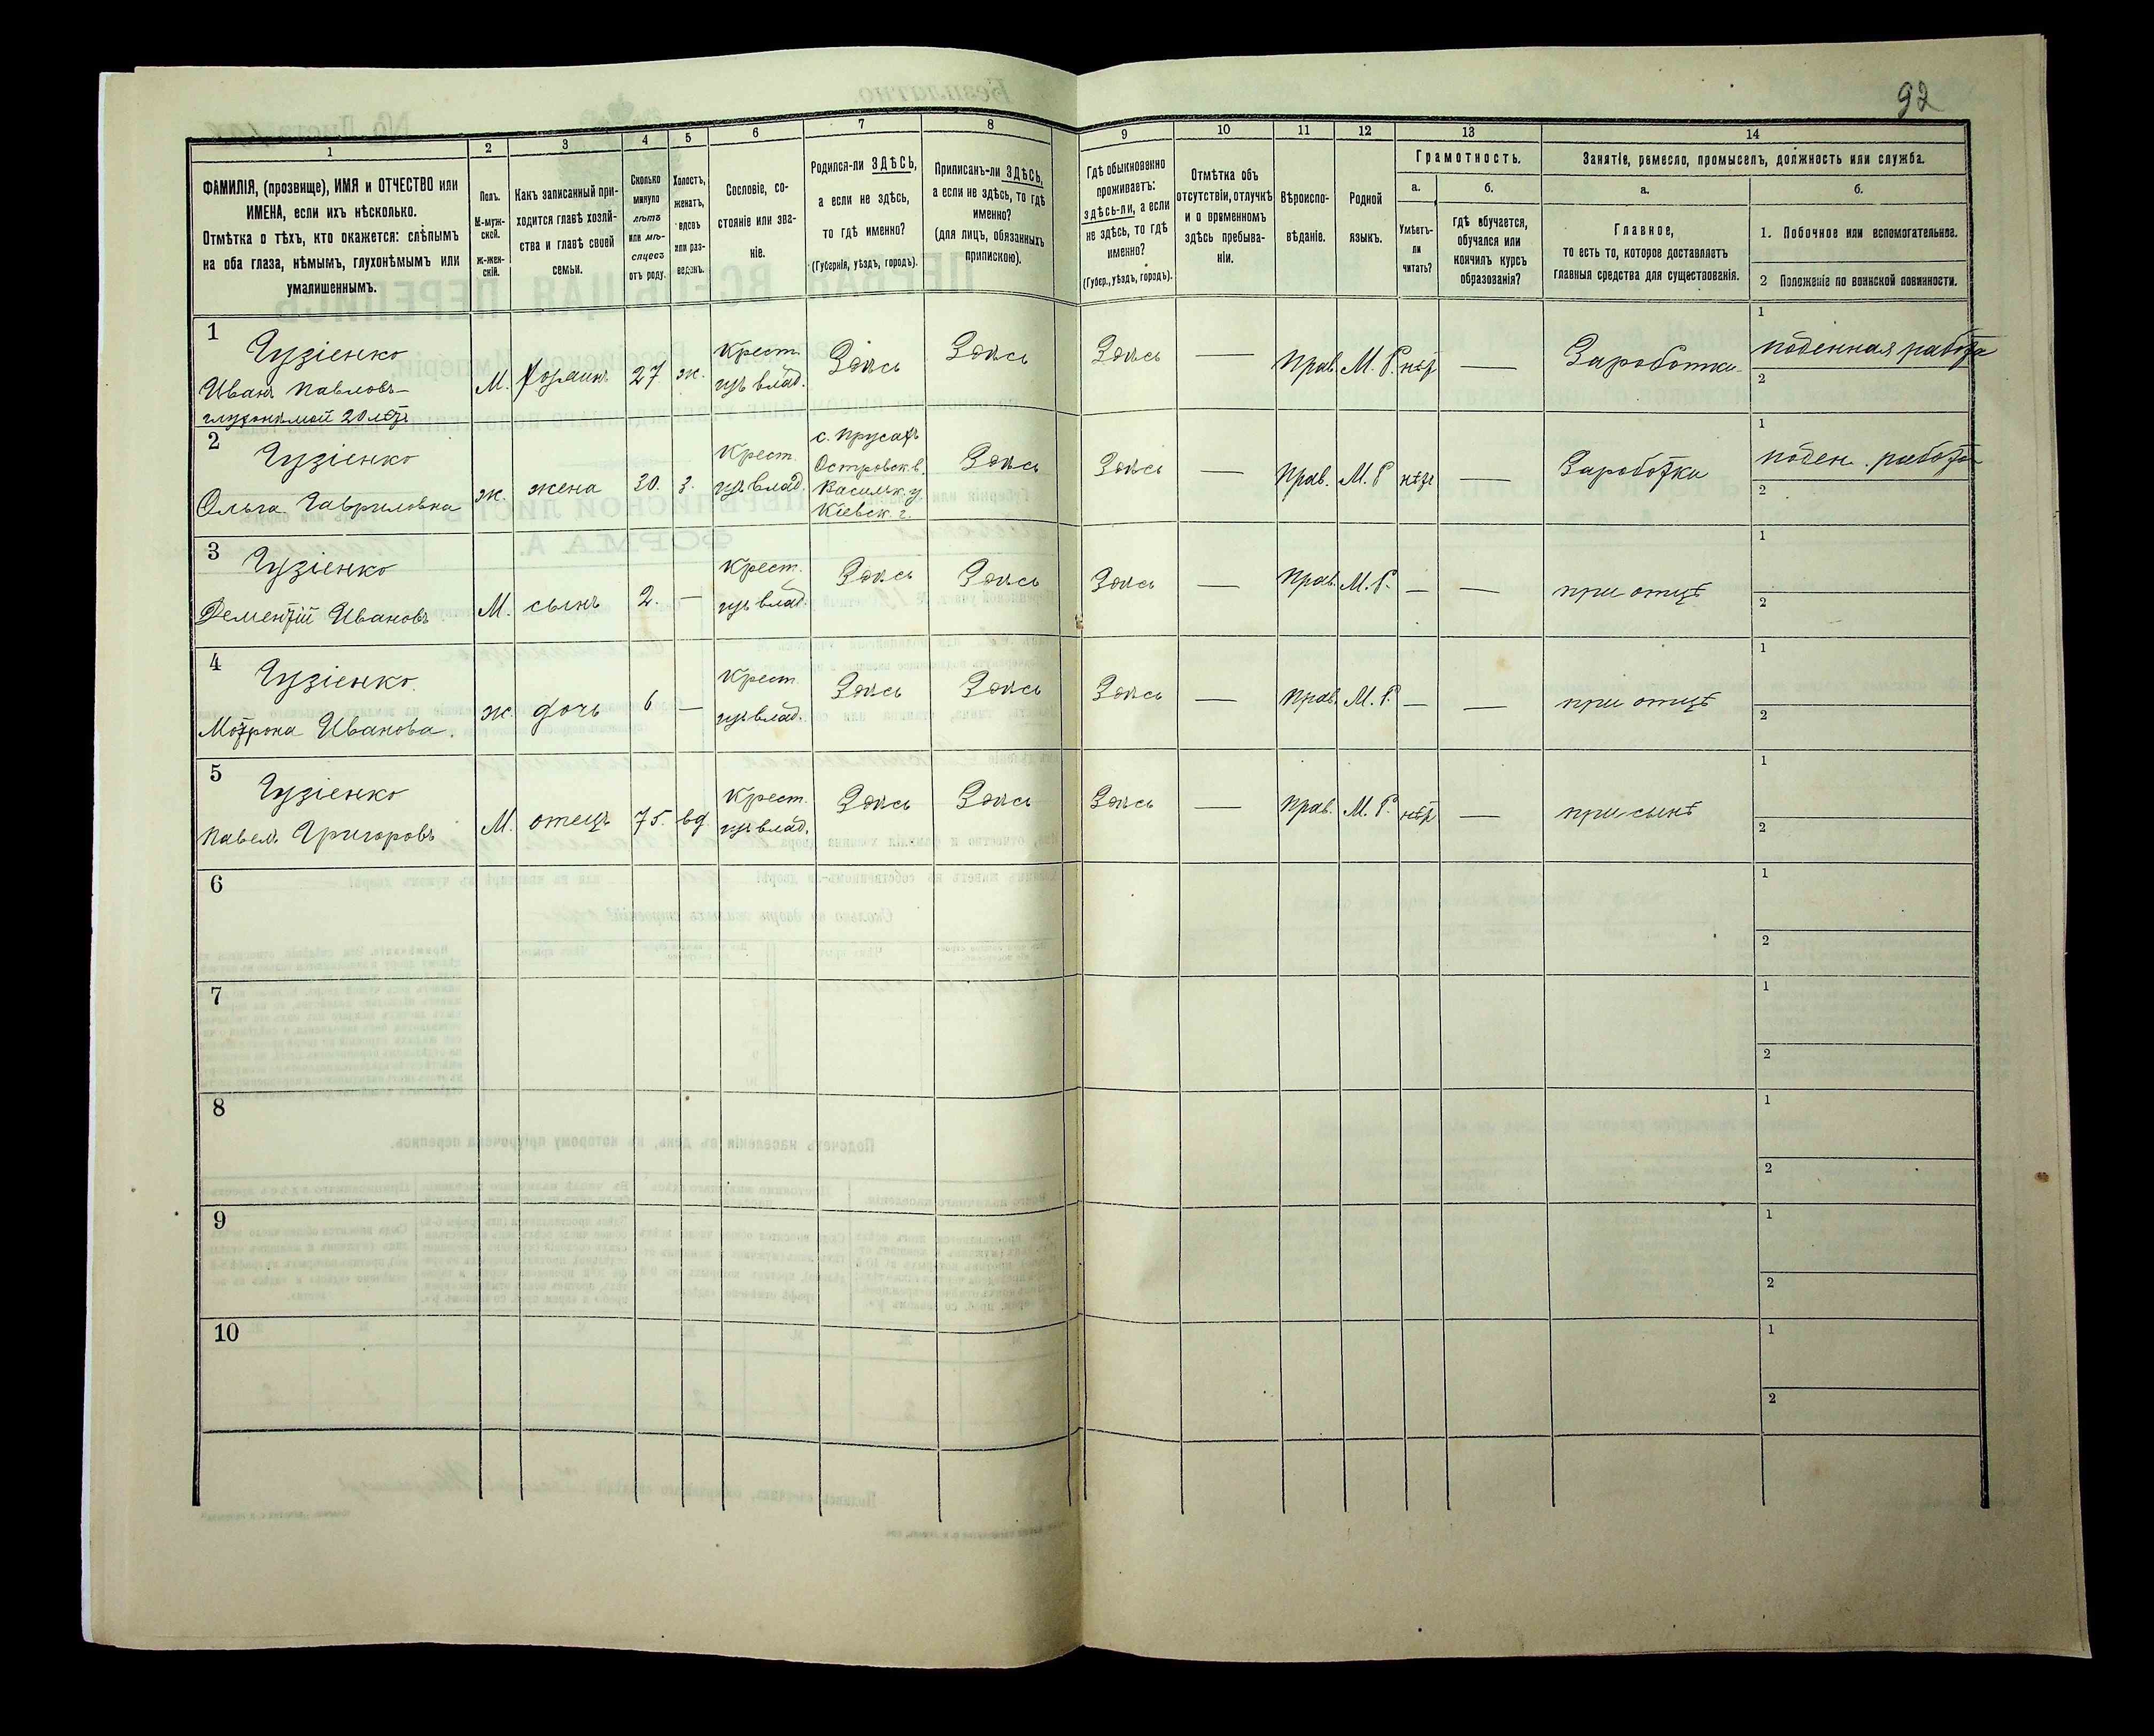 92
1
2
3
4
5
6
7
8
9
10
11
12
13
14
ФАМИЛІЯ, (прозвище), ИМЯ и ОТЧЕСТВО или
ИМЕНА, если ихъ нѣсколько.
Отмѣтка о тѣхъ, кто окажется: слѣпымъ
на оба глаза, нѣмымъ, глухонѣмымъ или
умалишеннымъ.
Полъ.
М-муж-
ской.
Ж-жен-
скій.
Какъ записанный при-
ходится главѣ хозяй-
ства и главѣ своей
семьи.
Сколько
минуло
лѣтъ
или мѣ-
сяцевъ
отъ роду.
Холостъ,
женатъ,
вдовъ
или раз-
веденъ.
Сословіе, со-
стояніе или зва-
ніе.
Родился-ли ЗДѢСЬ,
а если не здѣсь,
то гдѣ именно?
(Губернія, уѣздъ, городъ).
Приписанъ-ли ЗДѢСЬ,
а если не здѣсь, то гдѣ
именно?
(для лицъ, обязанныхъ
припискою).
Гдѣ обыкновенно
проживаетъ:
здѣсь-ли, а если
не здѣсь, то гдѣ
именно?
(Губер., уѣздъ, городъ).
Отмѣтка объ
отсутствіи, отлучкѣ
и о временномъ
здѣсь пребыва-
ніи.
Вѣроиспо-
вѣданіе.
Родной
языкъ.
Грамотность.
а.
Умѣетъ-
ли
читать?
б.
гдѣ обучается,
обучался или
кончилъ курсъ
образованія?
Занятіе, ремесло, промыселъ, должность или служба.
а.
Главное,
то есть то, которое доставляетъ
главныя средства для существованія.
б.
1. Побочное или вспомогательное.
2 Положеніе по воинской повинности.
1
Гузіенко
Иванъ Павловъ
глухонѣмой 20 лѣтъ
М. хозяинъ 27 ж. Крест. Здѣсь Здѣсь Здѣсь — Прав. М. Р. нѣтъ — Заработки
1 поденная работа
2
2
Гузіенко
Ольга Гавриловна
ж. жена 30. з. Крест. с. Прусахъ
Островск. в.
Васильк. у.
Кіевск. г.
Здѣсь Здѣсь — Прав. М. Р нѣтъ — Заработки
1 поден. работа
2
3
Гузіенко
Дементій Ивановъ
М. сынъ 2. — Крест. Здѣсь Здѣсь Здѣсь — Прав. М. Р. — — при отцѣ
1
2
4
Гузіенко
Мотрона Иванова.
ж. дочь 6 — Крест. Здѣсь Здѣсь Здѣсь — Прав. М. Р. — — при отцѣ
1
2
5
Гузіенко
Павелъ Григоровъ
М. отецъ 75. вд Крест. Здѣсь Здѣсь Здѣсь — Прав. М. Р. нѣтъ — при сынѣ
1
2
6
1
2
7
1
2
8
1
2
9
1
2
10
1
2